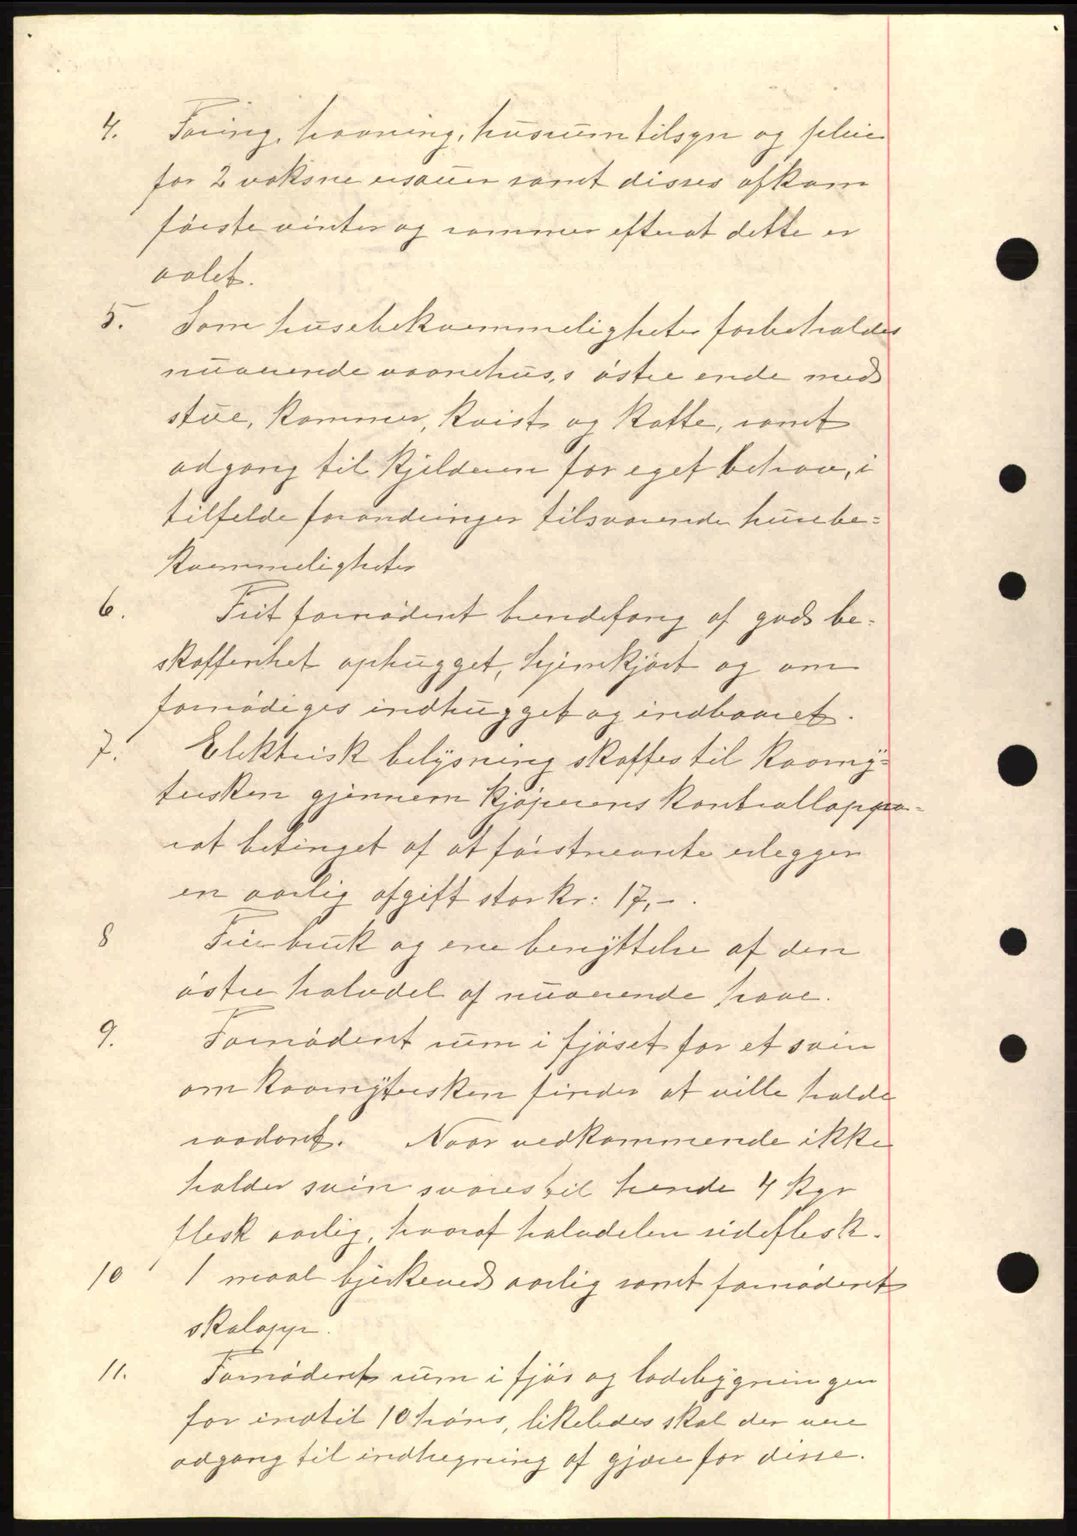 4. Foring, havning, husrum tilsyn og pleie
for 2 voksne ersauer samt disses afkom
første vinter og sommer efterat dette er
avlet.
5. Som husebekvemmeligheter forbeholdes
nuværende vaanehus,s østre ende med
stue, kammer, kvist og kotte, samt
adgang til kjelderen for eget behov, i
tilfelde forandringer tilsvarende husebe-
kvemmeligheter
6. Frit fornødent brendefang af god be-
skaffenhet ophugget, hjemkjørt og om
fornødiges indhugget og indbaaret.
7. Elektrisk belysning skaffes til kaarny-
tersken gjennem kjøperens kontrollappa-
rat betinget af at førstnevnte erlegger
en aarlig afgift stor kr: 17,-.
8 Fri bruk og ene benyttelse af den
østre halvdel af nuværende have.
9. Fornødent rum i fjøset for et svin
om kaarnytersken finder at ville holde
saadant. Naar vedkommende ikke
holder svin svares til hende 4 kgr
flesk aarlig, hvoraf halvdelen sideflesk.
10 1 maal bjerkeved aarlig samt fornødent
skalapp.
11. Fornødent rum i fjøs og ladebygningen
for indtil 10 høns, likeledes skal der vere
adgang til indhegning af gjære for disse.